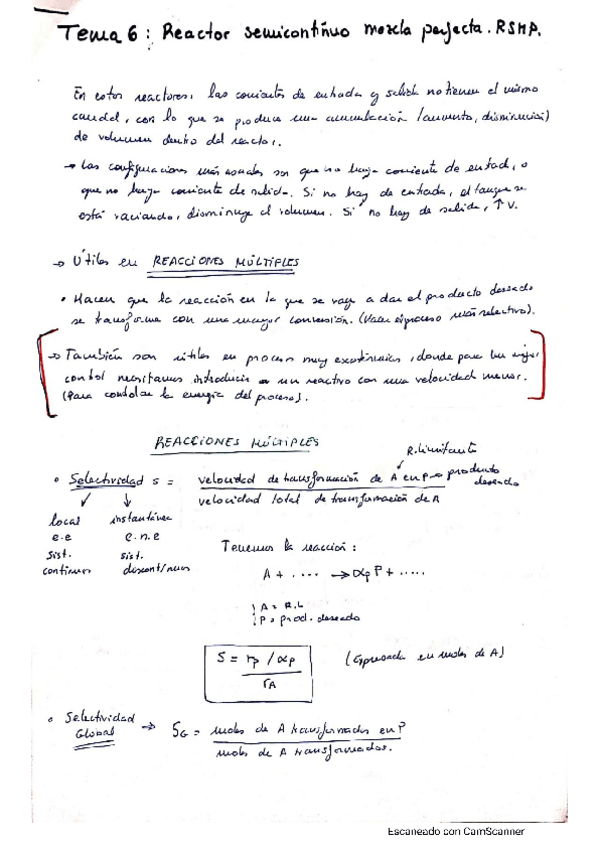 Tema 6: Reactor semicontinuo mezcla perfecta. RSMP.
En estos reactores, las corrientes de entrada y salida no tienen el mismo
caudal, con lo que se produce una acumulación (aumento, disminución)
de volumen dentro del reactor.
→ Las configuraciones más usuales son que no haya corriente de entrad, o
que no haya corriente de salida. Si no hay de entrada, el tanque se
está vaciando, disminuye el volumen. Si no hay de salida, ↑ V.
→ Útiles en REACCIONES MÚLTIPLES
• Hacen que la reacción en la que se vaya a dar el producto deseado
se transforme con una mayor conversión. (Hacer el proceso más selectivo).
→ También son útiles en procesos muy exotérmicos, donde para un mejor
control necesitamos introducir un reactivo con una velocidad menor.
(Para controlar la energía del proceso).
REACCIONES MÚLTIPLES
R. limitante
• Selectividad S = velocidad de transformación de A en P → producto deseado
velocidad total de transformación de A
local instantánea
e.e e.n.e
sist. sist.
continuos discontinuos
Tenemos la reacción:
A + .... → αp P + .....
A = R.L
P = prod. deseado
S = rp / αp
rA
(Expresada en moles de A)
• Selectividad Global → SG = moles de A transformados en P
moles de A transformados.
Escaneado con CamScanner